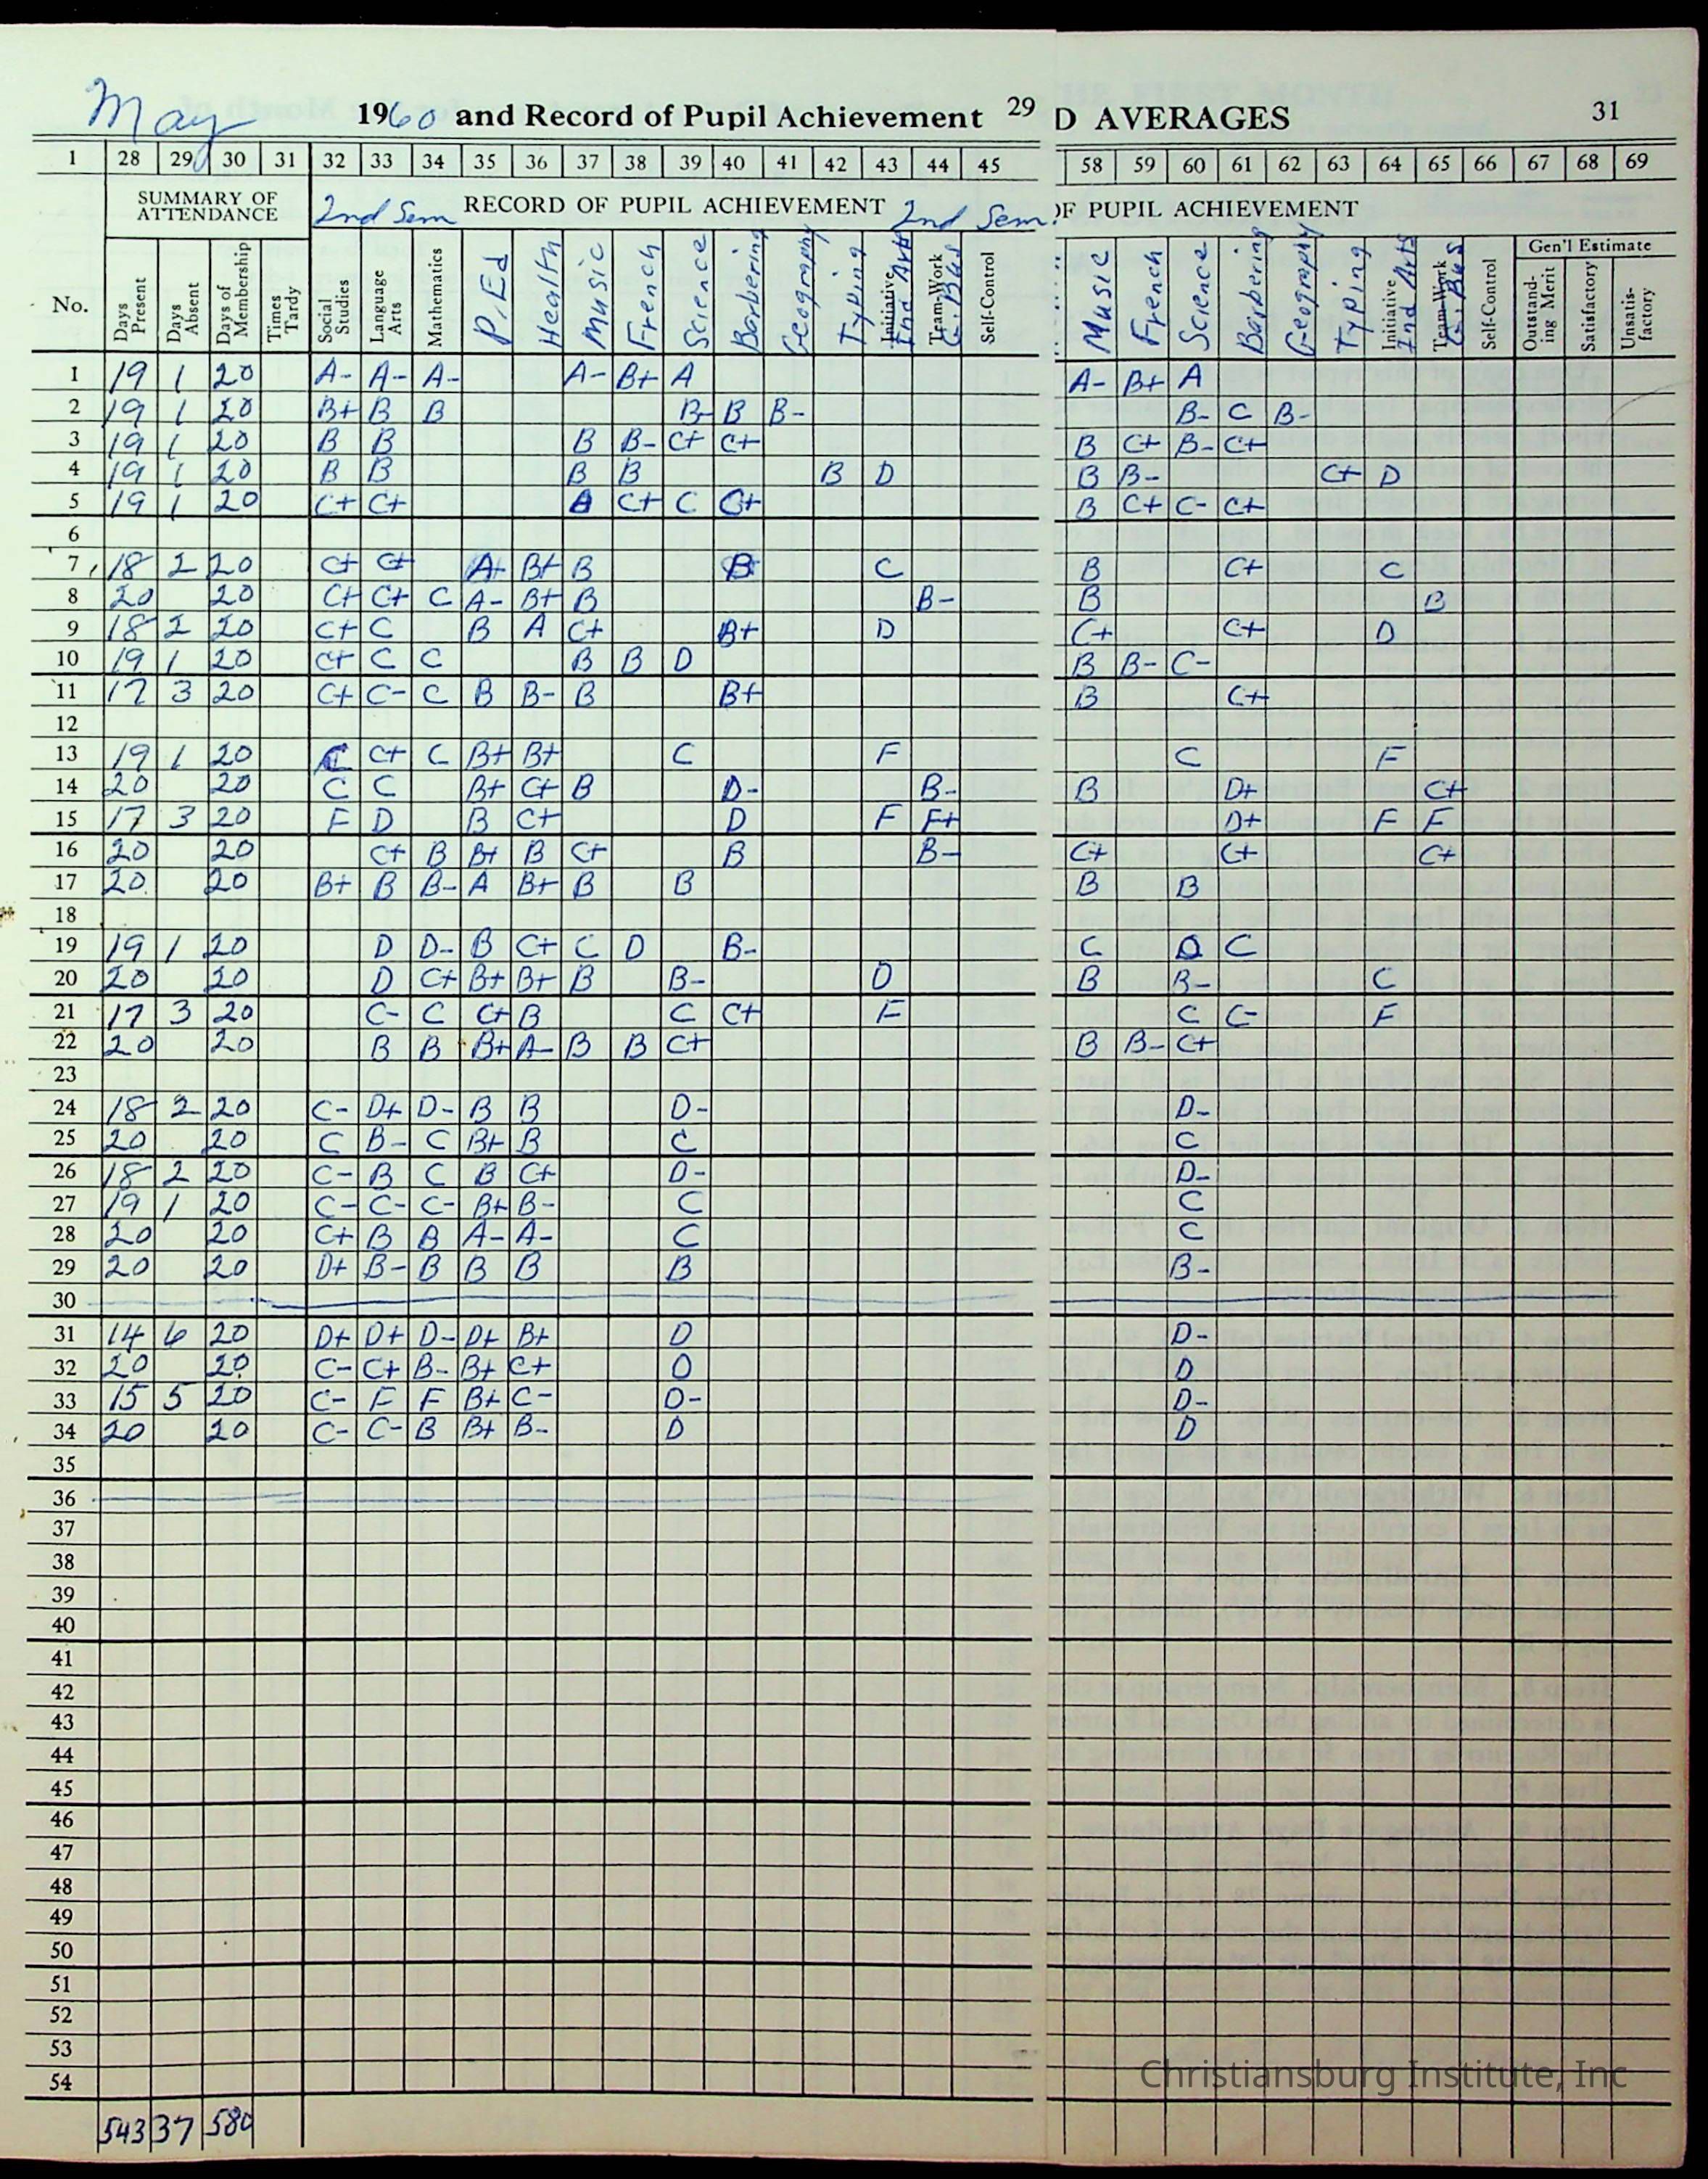 May 1960 and Record of Pupil Achievement 29 D AVERAGES 31
1 28 29 30 31 32 33 34 35 36 37 38 39 40 41 42 43 44 45 58 59 60 61 62 63 64 65 66 67 68 69
SUMMARY OF ATTENDANCE 2nd Sem RECORD OF PUPIL ACHIEVEMENT 2nd Sem. OF PUPIL ACHIEVEMENT
Gen'l Estimate
No. Days Present Days Absent Days of Membership Times Tardy Social Studies Language Arts Mathematics P. Ed Health Music French Science Barbering Geography Typing Initiative Ind Arts Team-Work G. Bus Self-Control Music French Science Barbering Geography Typing Initiative Ind Arts Team-Work G. Bus Self-Control Outstand-ing Merit Satisfactory Unsatis-factory
1 19 1 20 A- A- A- A- B+ A A- B+ A
2 19 1 20 B+ B B B- B B- B- C B-
3 19 1 20 B B B B- C+ C+ B C+ B- C+
4 19 1 20 B B B B B D B B- C+ D
5 19 1 20 C+ C+ C+ C C+ B C+ C- C+
6
7 18 2 20 C+ C+ A+ B+ B B C B C+ C
8 20 20 C+ C+ C A- B+ B B- B B
9 18 2 20 C+ C B A C+ B+ D C+ C+ D
10 19 1 20 C+ C C B B D B B- C-
11 17 3 20 C+ C- C B B- B B+ B C+
12
13 19 1 20 C C+ C B+ B+ C F C F
14 20 20 C C B+ C+ B D- B- B D+ C+
15 17 3 20 F D B C+ D F F+ D+ F F
16 20 20 C+ B B+ B C+ B B- C+ C+ C+
17 20 20 B+ B B- A B+ B B B B
18
19 19 1 20 D D- B C+ C D B- C D C
20 20 20 D C+ B+ B+ B B- D B B- C
21 17 3 20 C- C C+ B C C+ F C C- F
22 20 20 B B B+ A- B B C+ B B- C+
23
24 18 2 20 C- D+ D- B B D- D-
25 20 20 C B- C B+ B C C
26 18 2 20 C- B C B C+ D- D-
27 19 1 20 C- C- C- B+ B- C C
28 20 20 C+ B B A- A- C C
29 20 20 D+ B- B B B B B-
30
31 14 6 20 D+ D+ D- D+ B+ D D-
32 20 20 C- C+ B- B+ C+ D D
33 15 5 20 C- F F B+ C- D- D-
34 20 20 C- C- B B+ B- D D
35
36
37
38
39
40
41
42
43
44
45
46
47
48
49
50
51
52
53
54
543 37 580
Christiansburg Institute, Inc